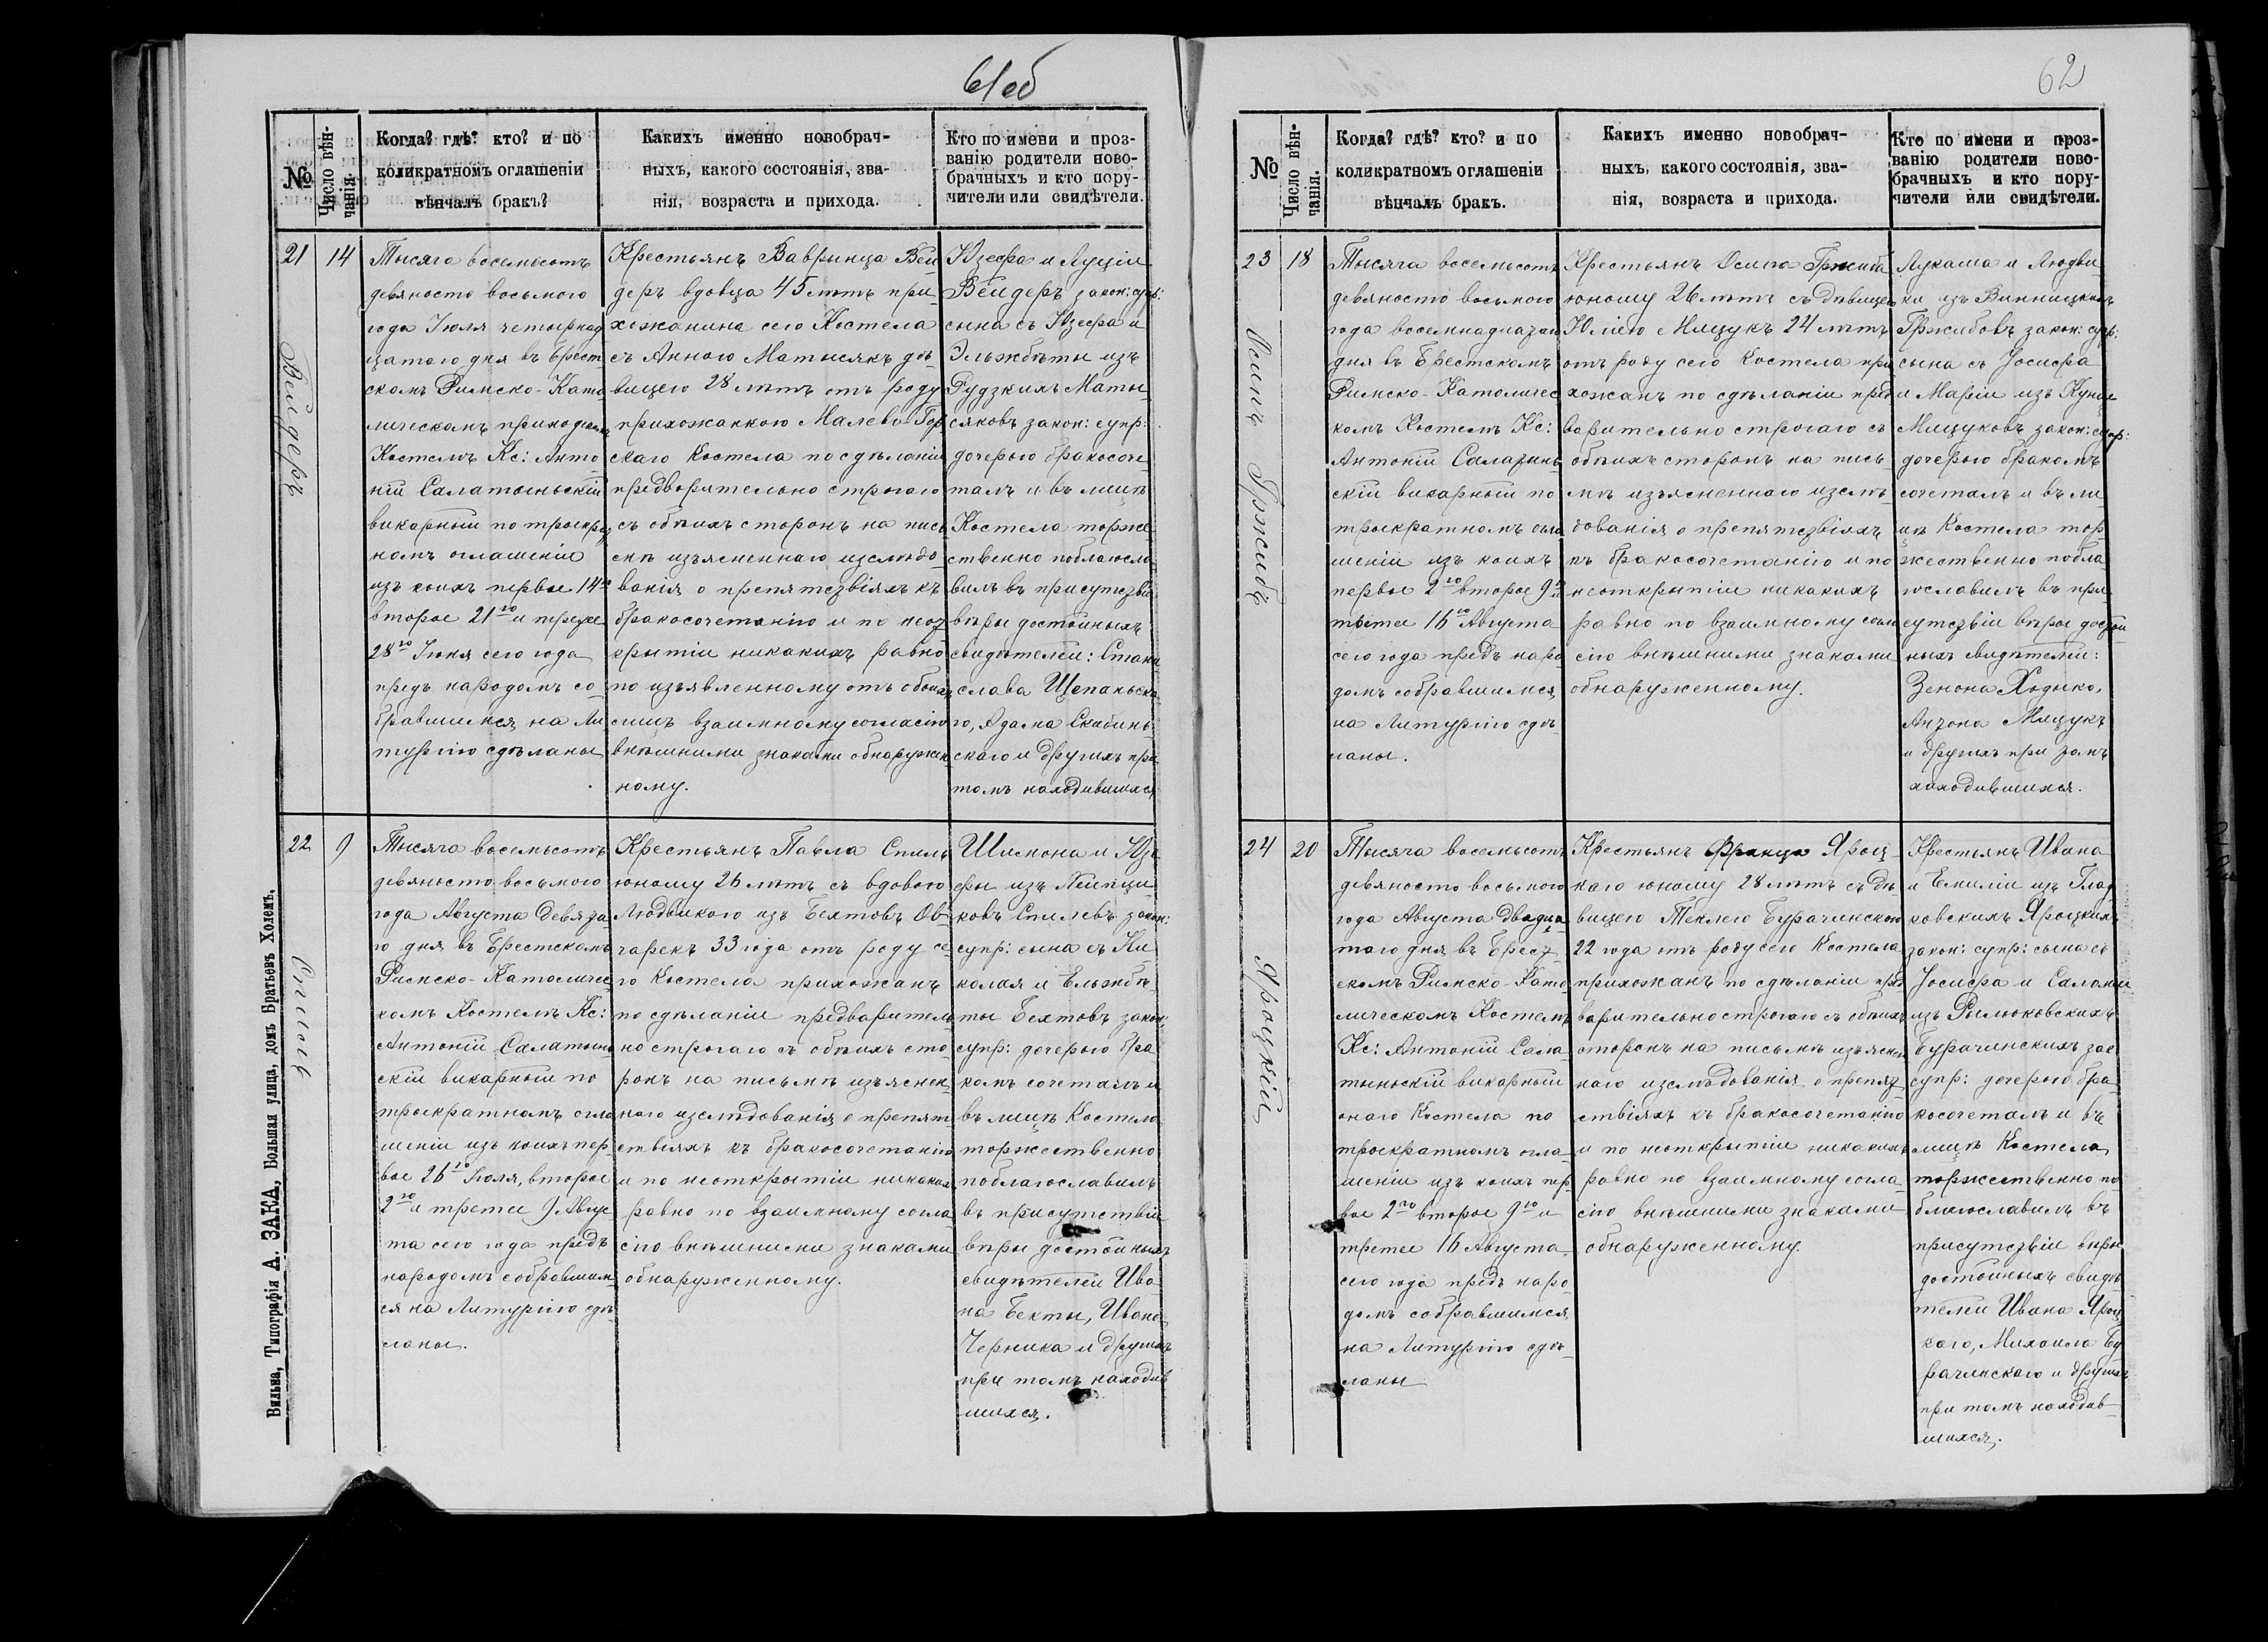 61об
№
Число вѣн-
чанія.
Когда? гдѣ? кто? и по
коликратномъ оглашеніи
вѣнчалъ бракъ?
Какихъ именно новобрач-
ныхъ, какого состоянія, зва-
нія, возраста и прихода.
Кто по имени и проз-
ванію родители ново-
брачныхъ и кто пору-
чители или свидѣтели.
21
14
Вейдеръ
Тысяча восемьсотъ
девяносто восьмого
года Іюля четырнад
цатого дня въ Брест
скомъ Римско-Като
лическомъ приходском
Костелѣ Кс: Анто
ній Салатыньскій
викарный по троекра
номъ оглашеніи
изъ коихъ первое 14го
второе 21го и третее
28го Іюня сего года
предъ народомъ со
бравшимся на Ли
тургію сдѣланы
Крестьянъ Вавринца Вей
деръ вдовца 45 лѣтъ при
хожанина сего Костела
съ Анною Матысякъ дѣ
вицею 28 лѣтъ отъ роду
прихожанкою Малево-Гор
скаго Костела по сдѣланіи
предворительно строгого
съ обѣихъ сторонъ на пись
мѣ изъясненнаго изслѣдо
ванія о препятствіяхъ къ
бракосочетанію и по неот
крытіи никакихъ равно
по изъявленному отъ обоихъ
лицъ взаимному согласію
внѣшними знаками обнаружен
ному.
Юзефа и Луціи
Вейдеръ закон: супр:
сына съ Юзефа и
Эльжбѣты изъ
Рудзкихъ Маты
сяковъ закон: супр:
дочерью бракосоче
талъ и въ лицѣ
Костела торже
ственно поблагосло
вилъ въ присутствіи
вѣры достойныхъ
свидѣтелей: Стани
слава Щепаньска
го, Адама Скибинь
скаго и другихъ при
томъ находившихся
22
9
Спиль
Тысяча восемьсотъ
девяносто восьмого
года Августа девята
го дня въ Брестскомъ
Римско-Католичес
комъ Костелѣ Кс:
Антоній Салатынь
скій викарный по
троекратномъ огла
шеніи изъ коихъ пер
вое 26го Іюля, второе
2го и третее 9 Авгус
та сего года предъ
народомъ собравшим
ся на Литургію сдѣ
ланы.
Крестьянъ Павла Спиль
юношу 26 лѣтъ съ вдовою
Людвикою изъ Бехтовъ Ов
чарекъ 33 года отъ роду се
го Костела прихожанъ
по сдѣланіи предваритель
но строгаго съ обѣихъ сто
ронъ на письмѣ изъяснен
наго изслѣдованія о препят
ствіяхъ къ бракосочетанію
и по неоткрытіи никакихъ
равно по взаимному согла
сію внѣшними знаками
обнаруженному.
Шимона и Юзе
фы изъ
ковъ Спилевъ закон:
супр: сына съ Ни
колая и Ельжбѣ
ты Бехтовъ закон:
супр: дочерью бра
комъ сочеталъ и
въ лицѣ Костела
торжественно
поблагославилъ
въ присутствіи
вѣры достойныхъ
свидѣтелей Ива
на Бехты, Ивана
Черника и другихъ
при томъ находив
шихся.
Вильна, Типографія А. ЗАКА, Большая улица, домъ Братьевъ Холемъ.
62
№
Число вѣн-
чанія.
Когда? гдѣ? кто? и по
коликратномъ оглашеніи
вѣнчалъ бракъ.
Какихъ именно новобрач-
ныхъ, какого состоянія, зва-
нія, возраста и прихода.
Кто по имени и проз-
ванію родители ново-
брачныхъ и кто пору-
чители или свидѣтели.
23
18
Осипъ Гржибъ
Тысяча восемьсотъ
девяносто восьмого
года восемнадцатаго
дня въ Брестскомъ
Римско-Католичес
комъ Костелѣ Кс:
Антоній Салатынь
скій викарный по
троекратномъ огла
шеніи изъ коихъ
первое 2го второе 9го и
третее 16го Августа
сего года предъ наро
домъ собравшимся
на Литургію сдѣ
ланы.
Крестьянъ Осипа Гржиба
юношу 26 лѣтъ съ дѣвицею
Юліею Мацукъ 24 лѣтъ
отъ роду сего Костела при
хожанъ по сдѣланіи пред
варительно строгаго съ
обѣихъ сторонъ на пись
мѣ изъясненнаго изслѣ
дованія о препятствіяхъ
къ бракосочетанію и по
неоткрытіи никакихъ
равно по взаимному согла
сію внѣшними знаками
обнаруженному.
Лукаша и Людви
ки изъ Винницкихъ
Гржибовъ закон: супр:
сына съ Іосифа
и Маріи изъ
Мацуковъ закон: супр:
дочерью бракомъ
сочеталъ и въ ли
цѣ Костела тор
жественно побла
гославилъ въ при
сутствіи вѣры достой
ныхъ свидѣтелей:
Зенона Ходько,
Антона Мацукъ
и другихъ при томъ
находившихся.
24
20
Яроцкій
Тысяча восемьсотъ
девяносто восьмого
года Августа двадца
таго дня въ Брест
скомъ Римско-Като
лическомъ Костелѣ
Кс: Антоній Сала
тыньскій викарный
онаго Костела по
троекратномъ огла
шеніи изъ коихъ пер
вое 2го второе 9го и
третее 16 Августа
сего года предъ наро
домъ собравшимся
на Литургію сдѣ
ланы
Крестьянъ Франца Яроц
каго юношу 28 лѣтъ съ дѣ
вицею Теклею Бурачинскою
22 года отъ роду сего Костела
прихожанъ по сдѣланіи пред
варительно строгаго съ обѣихъ
сторонъ на письмѣ изъяснен
наго изслѣдованія о препят
ствіяхъ къ бракосочетанію
и по неоткрытіи никакихъ
равно по взаимному согла
сію внѣшними знаками
обнаруженному.
Крестьянъ Ивана
и Емиліи изъ Глад
ковскихъ Яроцкихъ
закон: супр: сына съ
Іосифа и Саломеи
изъ
Бурачинскихъ зак
супр: дочерью бра
косочеталъ и въ
лицѣ Костела
торжественно по
благославилъ въ
присутствіи вѣры
достойныхъ свидѣ
телей Ивана Яроц
каго, Михаила Бу
рачинскаго и другихъ
при томъ находив
шихся.